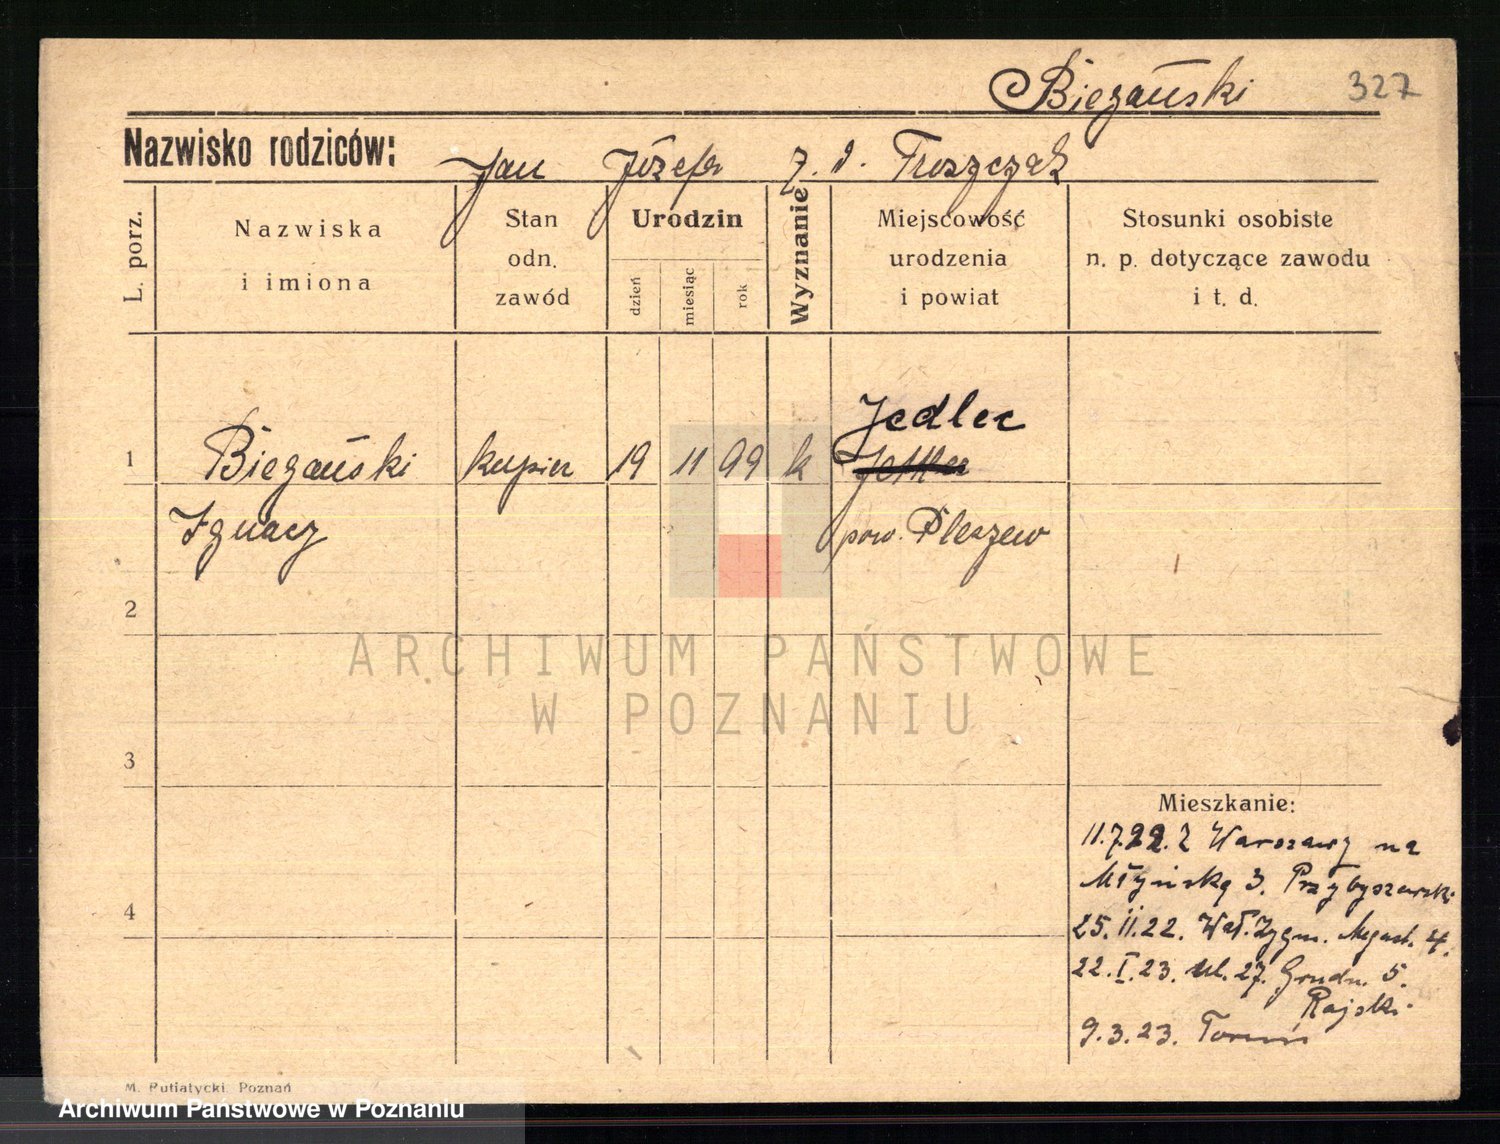 Biegański 327
Nazwisko rodziców: Jan Józefa z. d. Troszczak
L. porz.
Nazwiska
i imiona
Stan
odn.
zawód
Urodzin
dzień
miesiąc
rok
Wyznanie
Miejscowość
urodzenia
i powiat
Stosunki osobiste
n. p. dotyczące zawodu
i t. d.
Jedlec
1 Biegański kupiec 19 11 99 k
Ignacy pow. Pleszew
2
ARCHIWUM PAŃSTWOWE
W POZNANIU
3
Mieszkanie:
11.7.22. z Warszawy na
Młyńską 3. Przybyszewski
4
25.11.22. Wał. Zygm. August. 4.
22.I.23. ul. 27. Grudn. 5.
Rajski
9.3.23. Toruń
M. Putiatycki, Poznań
Archiwum Państwowe w Poznaniu